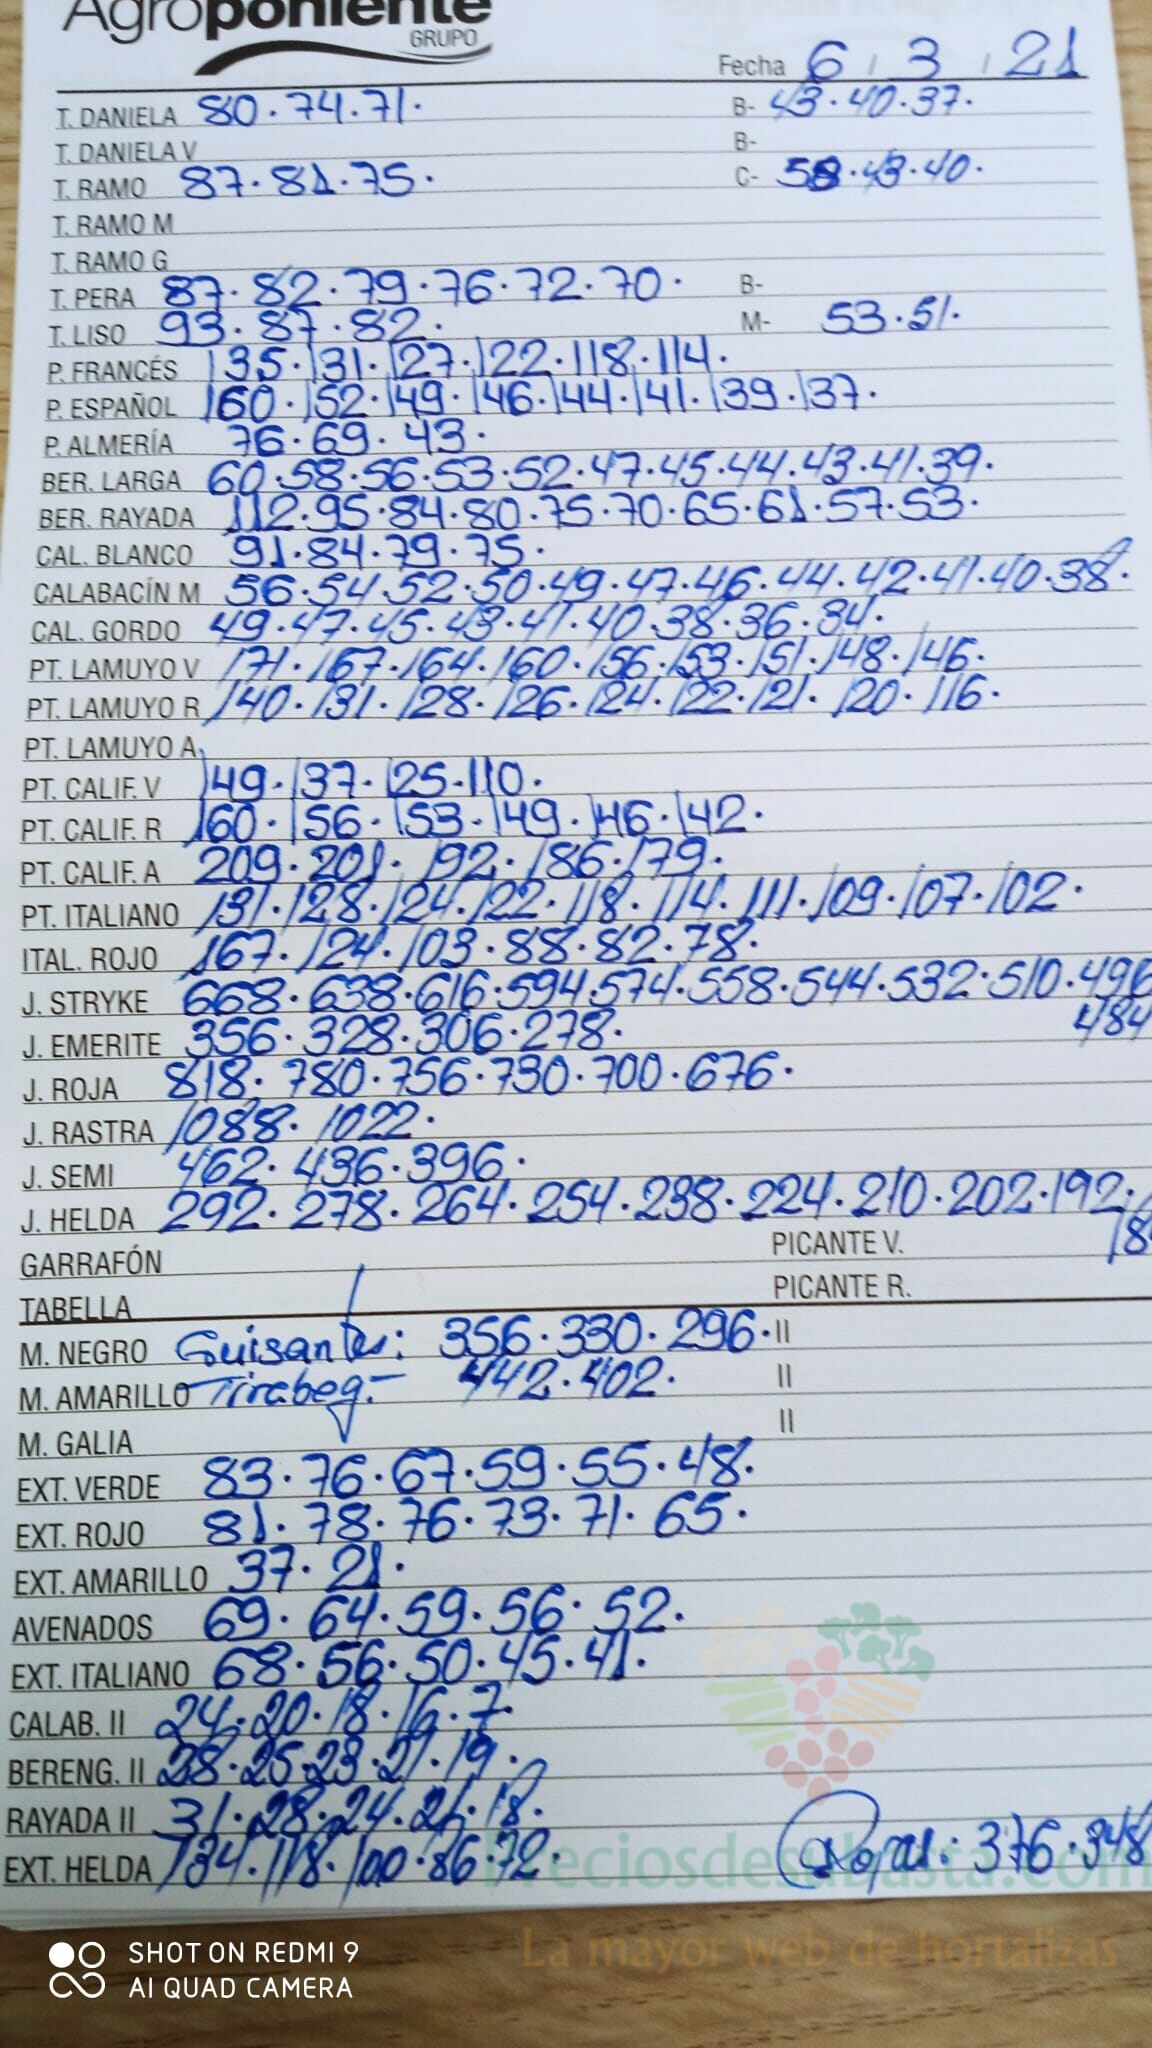 Agroponiente
GRUPO
Fecha 6 / 3 / 21
T. DANIELA 80.74.71. B- 43.40.37.
T. DANIELA V B-
T. RAMO 87.81.75. C- 58.43.40.
T. RAMO M
T. RAMO G
T. PERA 87.82.79.76.72.70. B-
T. LISO 93.87.82. M- 53.51.
P. FRANCÉS 135.131.127.122.118.114.
P. ESPAÑOL 160.152.149.146.144.141.139.137.
P. ALMERÍA 76.69.43.
BER. LARGA 60.58.56.53.52.47.45.44.43.41.39.
BER. RAYADA 112.95.84.80.75.70.65.61.57.53.
CAL. BLANCO 91.84.79.75.
CALABACÍN M 56.54.52.50.49.47.46.44.42.41.40.38.
CAL. GORDO 49.47.45.43.41.40.38.36.34.
PT. LAMUYO V 171.167.164.160.156.153.151.148.146.
PT. LAMUYO R 140.131.128.126.124.122.121.120.116.
PT. LAMUYO A
PT. CALIF. V 149.137.125.110.
PT. CALIF. R 160.156.153.149.146.142.
PT. CALIF. A 209.201.192.186.179.
PT. ITALIANO 131.128.124.122.118.114.111.109.107.102.
ITAL. ROJO 167.124.103.88.82.78.
J. STRYKE 668.638.616.594.574.558.544.532.510.496
J. EMERITE 356.328.306.278. 484
J. ROJA 818.780.756.730.700.676.
J. RASTRA 1088.1022.
J. SEMI 462.436.396.
J. HELDA 292.278.264.254.238.224.210.202.192.
GARRAFÓN PICANTE V. 18
TABELLA PICANTE R.
M. NEGRO Guisantes: 356.330.296. II
M. AMARILLO Tirabeg.- 442.402. II
M. GALIA II
EXT. VERDE 83.76.67.59.55.48.
EXT. ROJO 81.78.76.73.71.65.
EXT. AMARILLO 37.21.
AVENADOS 69.64.59.56.52.
EXT. ITALIANO 68.56.50.45.41.
CALAB. II 24.20.18.16.7.
BERENG. II 28.25.23.21.19.
RAYADA II 31.28.24.21.18.
EXT. HELDA 134.118.100.86.72. 376.348
Preciosdesubasta.com
La mayor web de hortalizas
SHOT ON REDMI 9
AI QUAD CAMERA